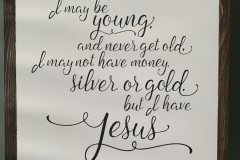 I may be
young,
and never get old.
I may not have money,
silver or gold
but I have
Jesus